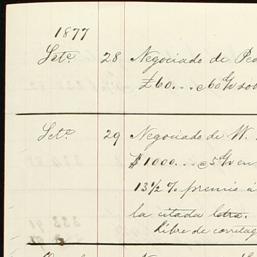 1877
Set.e 28 Negociado de Ped
£60... c/60 d/v so
Set.e 29 Negociado de W.
$1000... c/5 d/v en
13 1/2 % premio á
la citada letra.
Libre de corretag